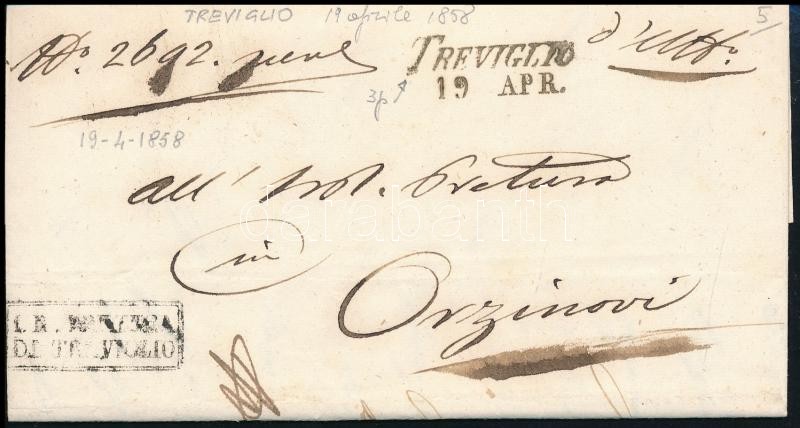 TREVIGLIO 19 aprile 1858
5
No. 2692. pene
TREVIGLIO
19 APR.
d'Uff.o
3p
19-4-1858
all' Pretura
in
Orzinovi
darabanth
I. R. PRETURA
DI TREVIGLIO